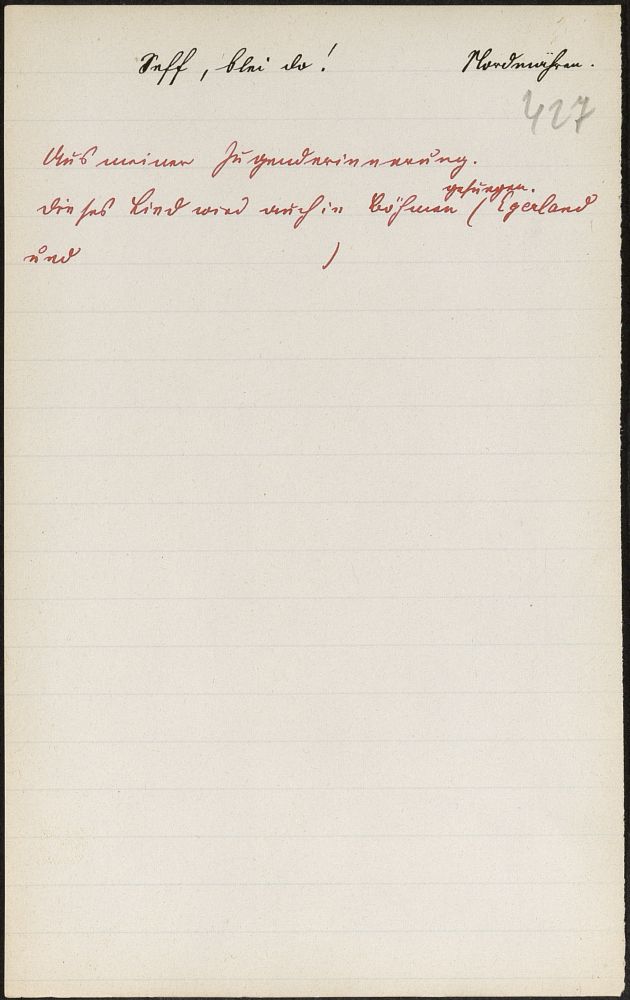 Seff, blei do! Nordmähren.
427
Aus meiner Jugenderinnerung.
gesungen.
Dieses Lied wird auch in Böhmen (Egerland
und )